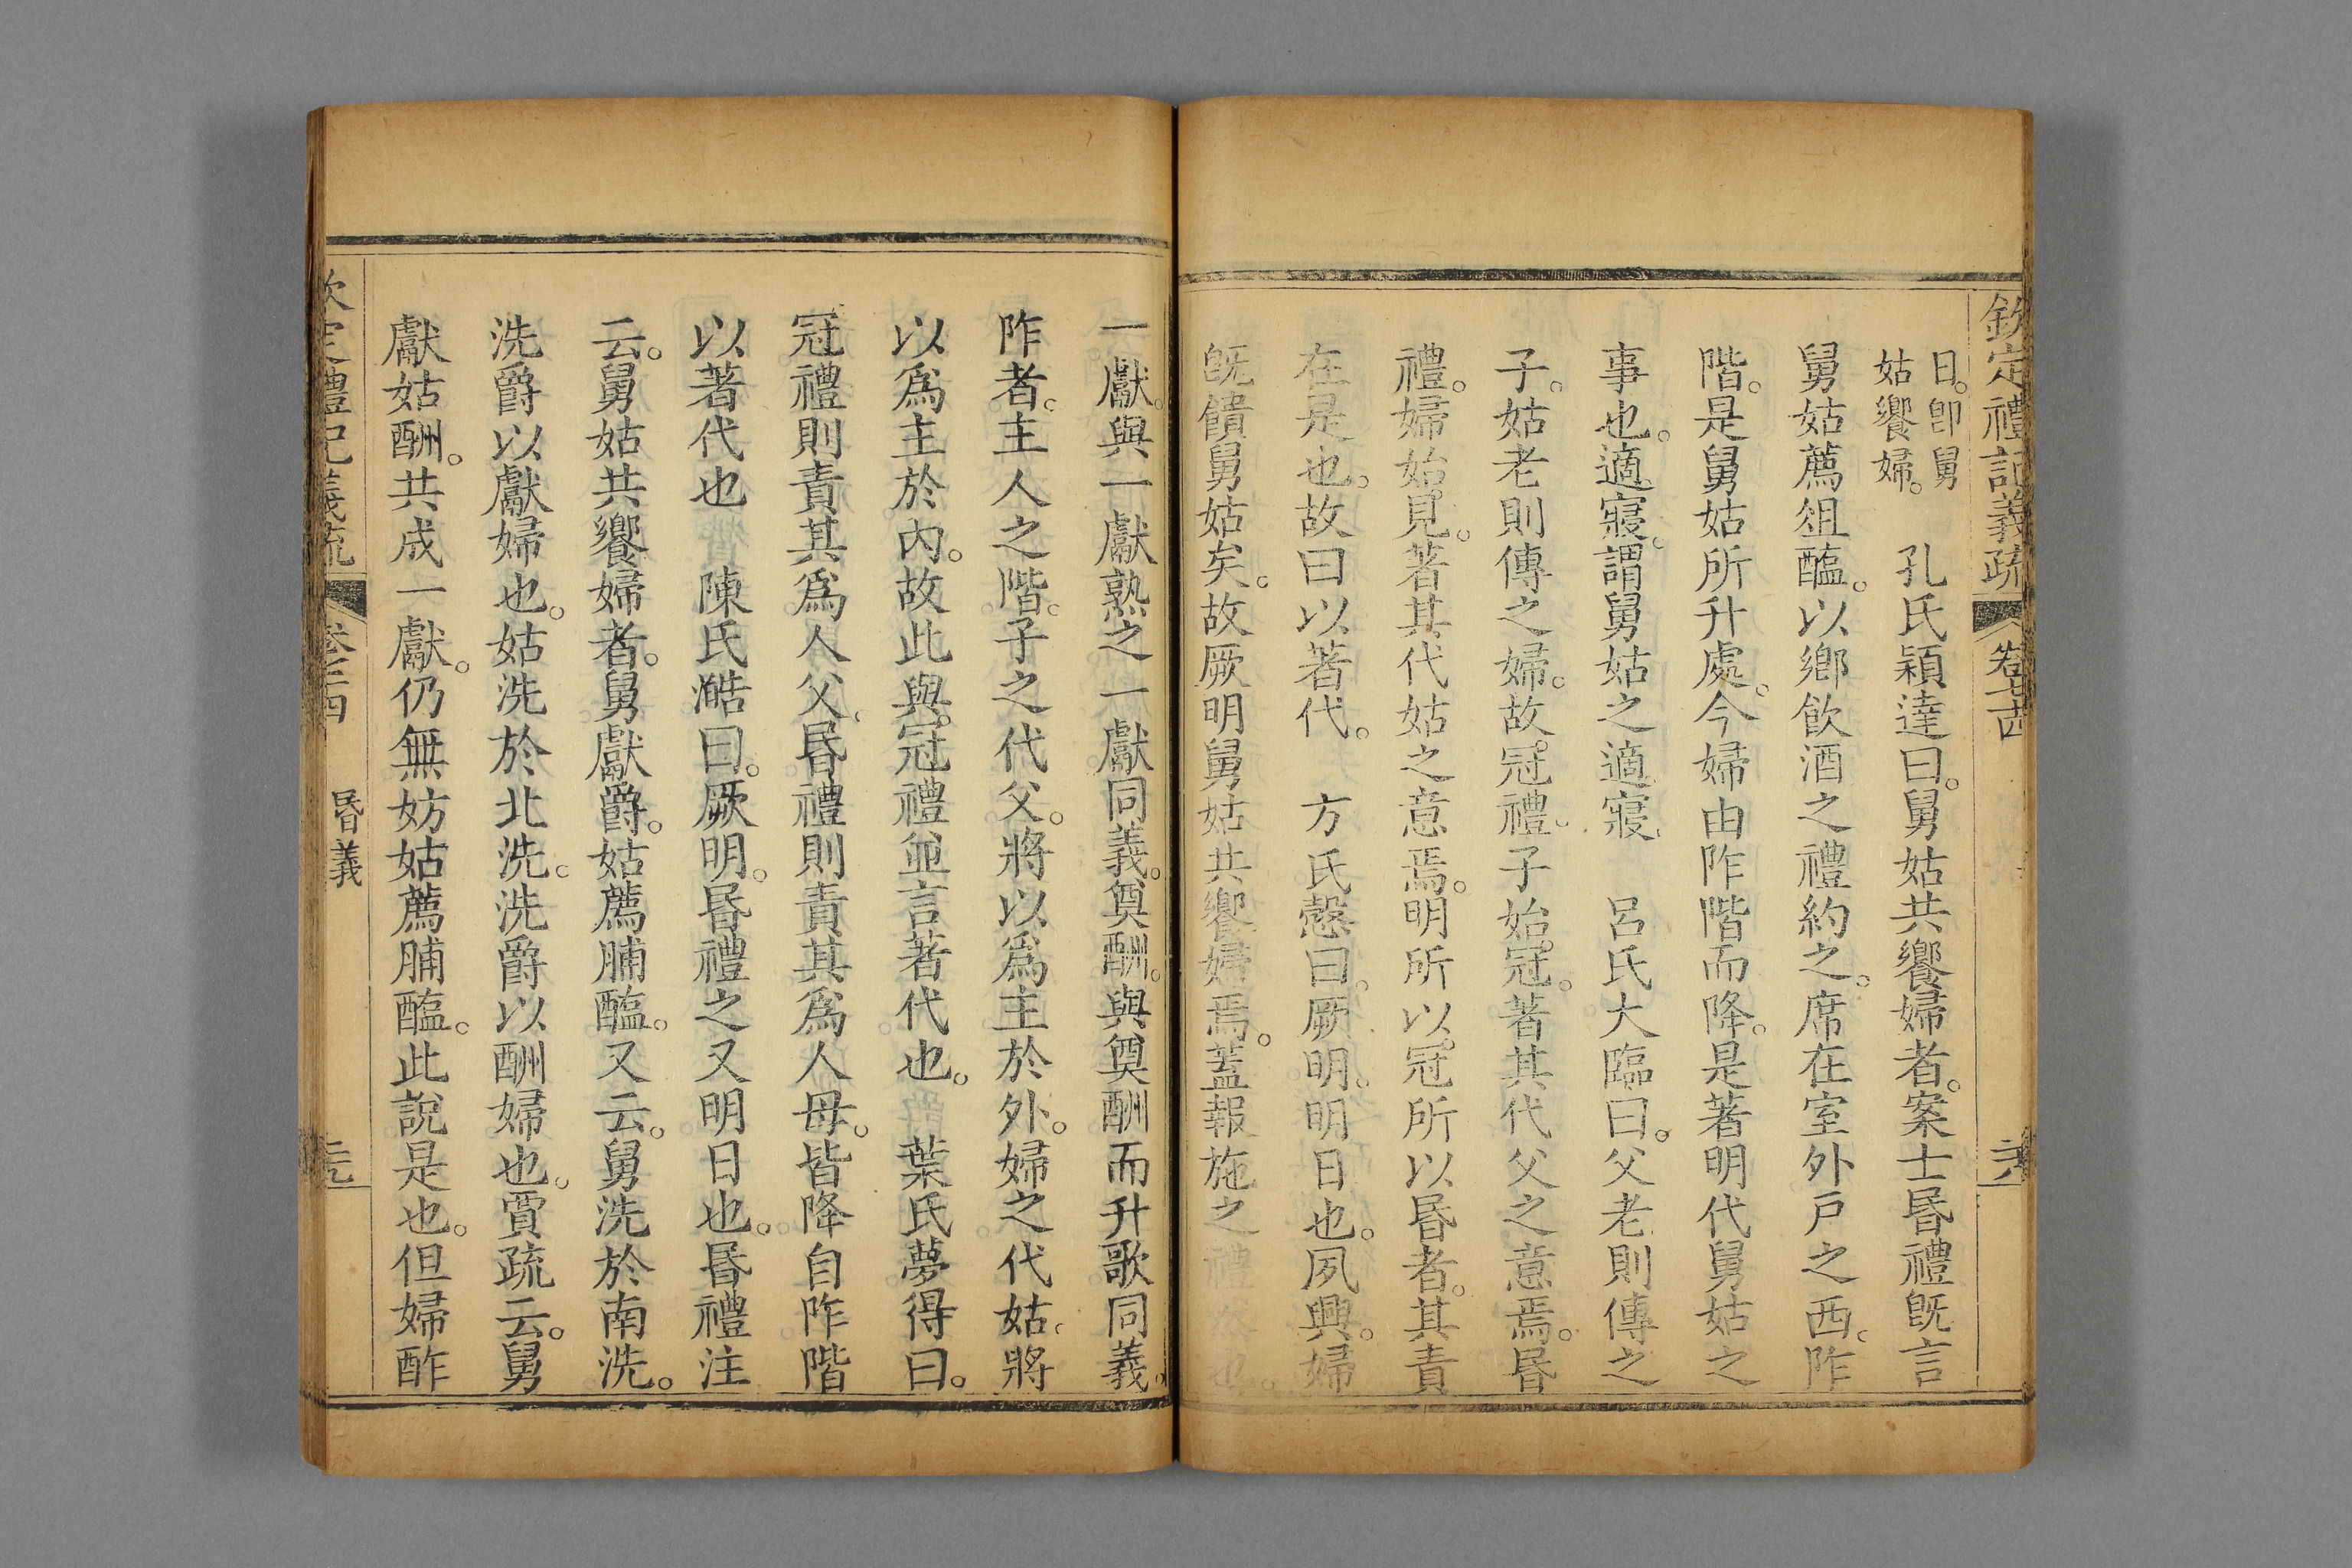 欽定禮記義疏 卷七十四 二六
日。卽舅
姑饗婦。
孔氏穎達曰。舅姑共饗婦者。案士昬禮旣言
舅姑薦俎醢。以鄉飲酒之禮約之。席在室外戸之西。阼
階。是舅姑所升處。今婦由阼階而降。是著明代舅姑之
事也。適寢。謂舅姑之適寢。 呂氏大臨曰。父老則傳之
子。姑老則傳之婦。故冠禮。子始冠。著其代父之意焉。昬
禮。婦始見。著其代姑之意焉。明所以冠所以昬者。其責
在是也。故曰以著代。 方氏慤曰。厥明。明日也。夙興。婦
旣饋舅姑矣。故厥明舅姑共饗婦焉。蓋報施之禮然也。
一獻。與一獻熟之一獻同義。奠酬。與奠酬而升歌同義。
阼者。主人之階。子之代父。將以爲主於外。婦之代姑。將
以爲主於內。故此與冠禮並言著代也。 葉氏夢得曰。
冠禮則責其爲人父。昬禮則責其爲人母。皆降自阼階
以著代也 陳氏澔曰。厥明。昬禮之又明日也。昬禮注
云。舅姑共饗婦者。舅獻爵。姑薦脯醢。又云。舅洗於南洗。
洗爵以獻婦也。姑洗於北洗。洗爵以酬婦也。賈疏云。舅
獻姑酬。共成一獻。仍無妨姑薦脯醢。此說是也。但婦酢
欽定禮記義疏 卷七十四 昬義 二九